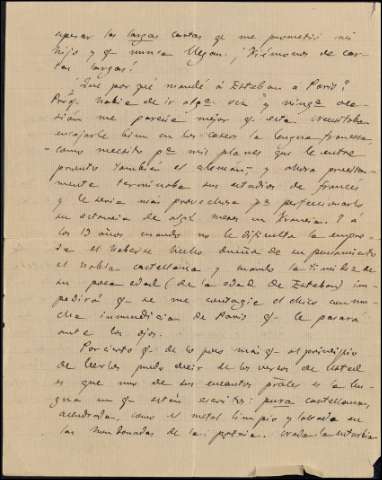 esperar las largas cartas q. me prometió mi
hijo y q. nunca llegan. ¡ de car-
tas largas!
¿Que por qué mandé á Esteban a Paris?
Porq. había de ir alga. vez y ninga. oca-
sión me parecía mejor q. esta. necesitaba
encajarle bien en los cascos la lengua francesa
– como necesito pa. mis planes que le entre
pronto también el alemán – y ahora precisa-
mente terminaba sus estudios de francés
y le sería más provechosa pa. perfeccionarlo
su estancia de algs. meses en Francia. Y á
los 13 años cuando no le dificulta la empre-
sa el haberse hecho dueña de su pensamiento
el habla castellana y cuando la timidez de
su poca edad (de la edad de Esteban) im-
pedirá q. se me contagie el chico con mu-
cha inmundicia de Paris q. le pasará
ante los ojos.
Por cierto q. de lo poco más q. al principio
de leerlos pude decir de los versos de usted
es que uno de sus encantos prales. es la len-
gua en q. están escritos: pura castellana,
acendrada, como el metal limpio y labrada en
las hondonadas de la patria.